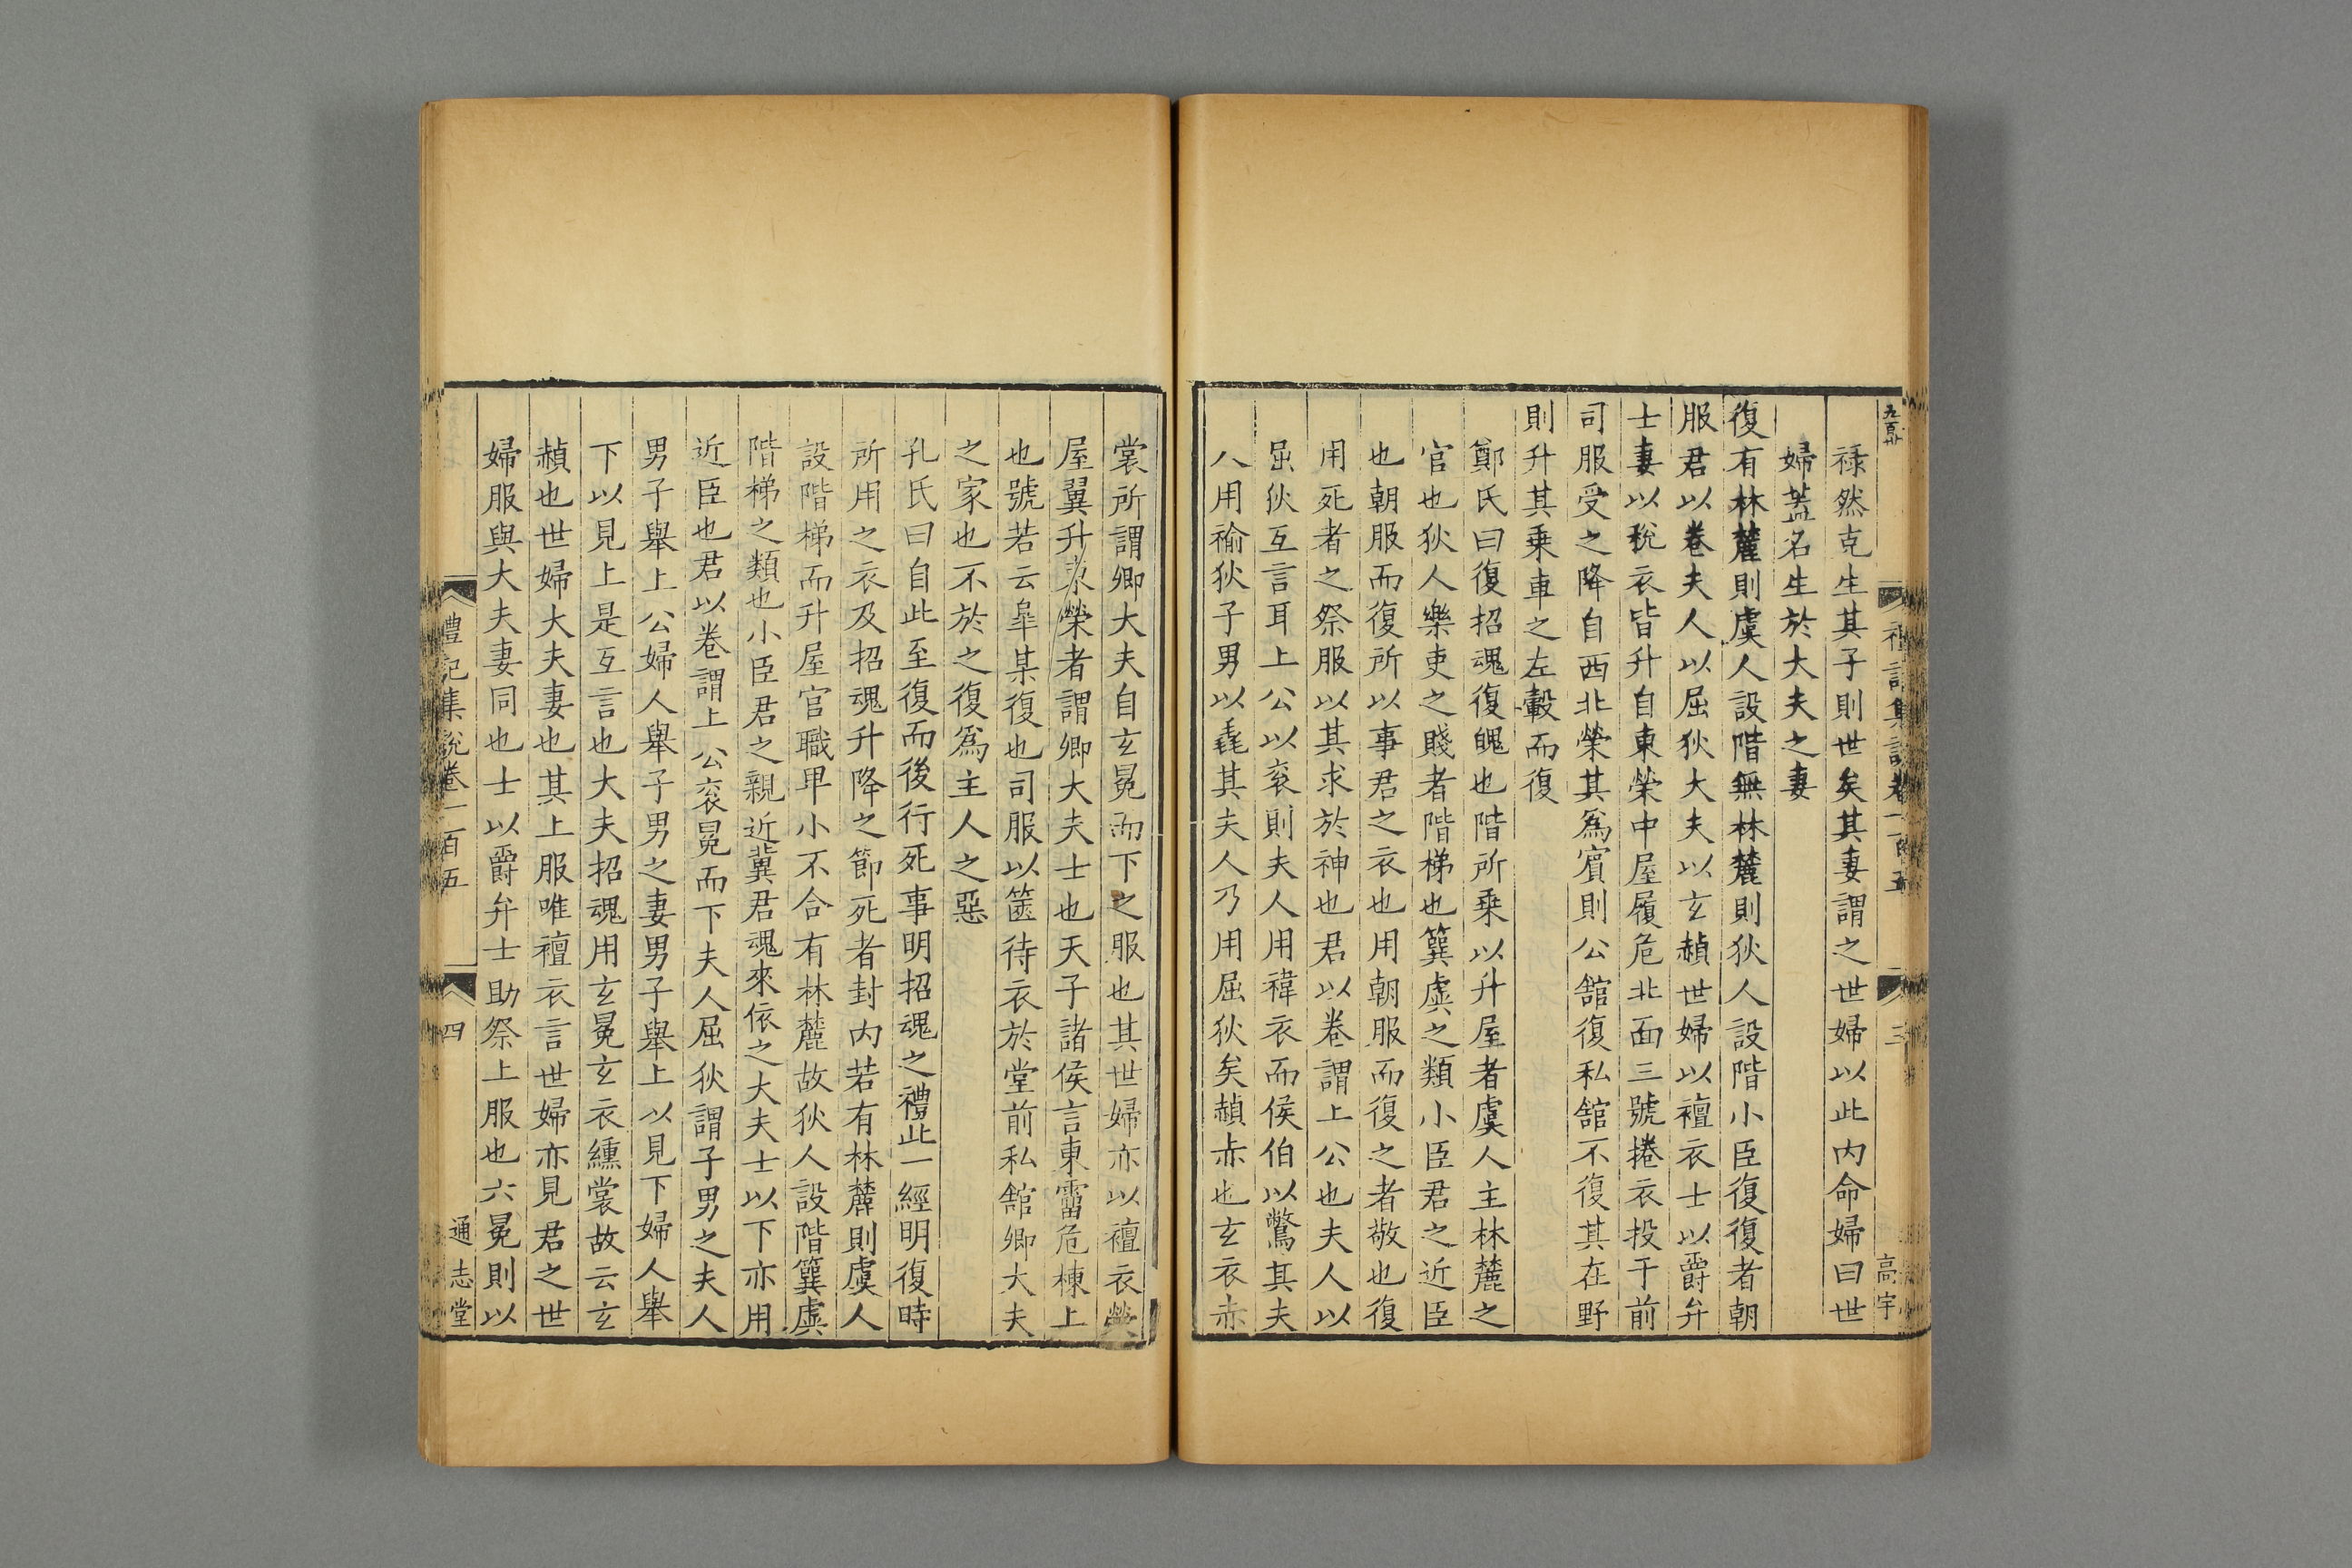 禮記集說卷一百五
三
高宇
祿然克生其子則世矣其妻謂之世婦以此内命婦曰世
婦蓋名生於大夫之妻
復有林麓則虞人設階無林麓則狄人設階小臣復復者朝
服君以卷夫人以屈狄大夫以玄赬世婦以襢衣士以爵弁
士妻以稅衣皆升自東榮中屋履危北面三號捲衣投于前
司服受之降自西北榮其爲賔則公舘復私舘不復其在野
則升其乗車之左轂而復
鄭氏曰復招魂復魄也階所乗以升屋者虞人主林麓之
官也狄人樂吏之賤者階梯也簨虡之類小臣君之近臣
也朝服而復所以事君之衣也用朝服而復之者敬也復
用死者之祭服以其求於神也君以卷謂上公也夫人以
屈狄互言耳上公以衮則夫人用褘衣而侯伯以鷩其夫
人用揄狄子男以毳其夫人乃用屈狄矣赬赤也玄衣赤
裳所謂卿大夫自玄冕而下之服也其世婦亦以襢衣榮
屋翼升東榮者謂卿大夫士也天子諸侯言東霤危棟上
也號若云臯某復也司服以篋待衣於堂前私舘卿大夫
之家也不於之復爲主人之惡
孔氏曰自此至復而後行死事明招魂之禮此一經明復時
所用之衣及招魂升降之節死者封内若有林麓則虞人
設階梯而升屋官職卑小不合有林麓故狄人設階簨虡
階梯之類也小臣君之親近冀君魂來依之大夫士以下亦用
近臣也君以卷謂上公衮冕而下夫人屈狄謂子男之夫人
男子舉上公婦人舉子男之妻男子舉上以見下婦人舉
下以見上是互言也大夫招魂用玄冕玄衣纁裳故云玄
赬也世婦大夫妻也其上服唯襢衣言世婦亦見君之世
婦服與大夫妻同也士以爵弁士助祭上服也六冕則以
禮記集說卷一百五
四
通志堂